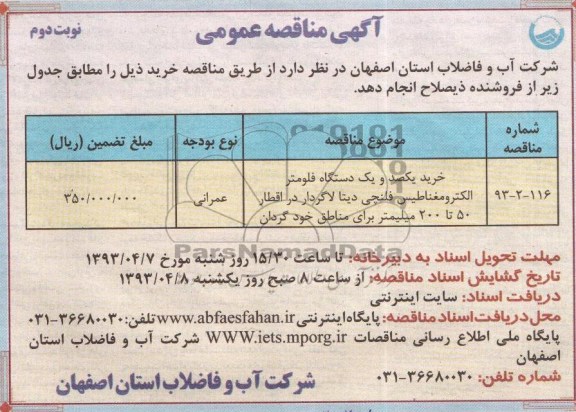 آگهی مناقصه عمومی
نوبت دوم
شرکت آب و فاضلاب استان اصفهان در نظر دارد از طریق مناقصه خرید ذیل را مطابق جدول
زیر از فروشنده ذیصلاح انجام دهد.
شماره مناقصه
موضوع مناقصه
نوع بودجه
مبلغ تضمین (ریال)
۹۳-۲-۱۱۶
خرید یکصد و یک دستگاه فلومتر
الکترومغناطیس فلنجی دیتا لاگردار در اقطار
۵۰ تا ۲۰۰ میلیمتر برای مناطق خود گردان
عمرانی
۳۵۰/۰۰۰/۰۰۰
ParsNamadData
مهلت تحویل اسناد به دبیرخانه: تا ساعت ۱۵/۳۰ روز شنبه مورخ ۱۳۹۳/۰۴/۷
تاریخ گشایش اسناد مناقصه: از ساعت ۸ صبح روز یکشنبه ۱۳۹۳/۰۴/۸
دریافت اسناد: سایت اینترنتی
محل دریافت اسناد مناقصه: پایگاه اینترنتی www.abfaesfahan.ir تلفن: ۳۶۶۸۰۰۳۰-۰۳۱
پایگاه ملی اطلاع رسانی مناقصات WWW.iets.mporg.ir شرکت آب و فاضلاب استان
اصفهان
شماره تلفن: ۳۶۶۸۰۰۳۰-۰۳۱
شرکت آب و فاضلاب استان اصفهان